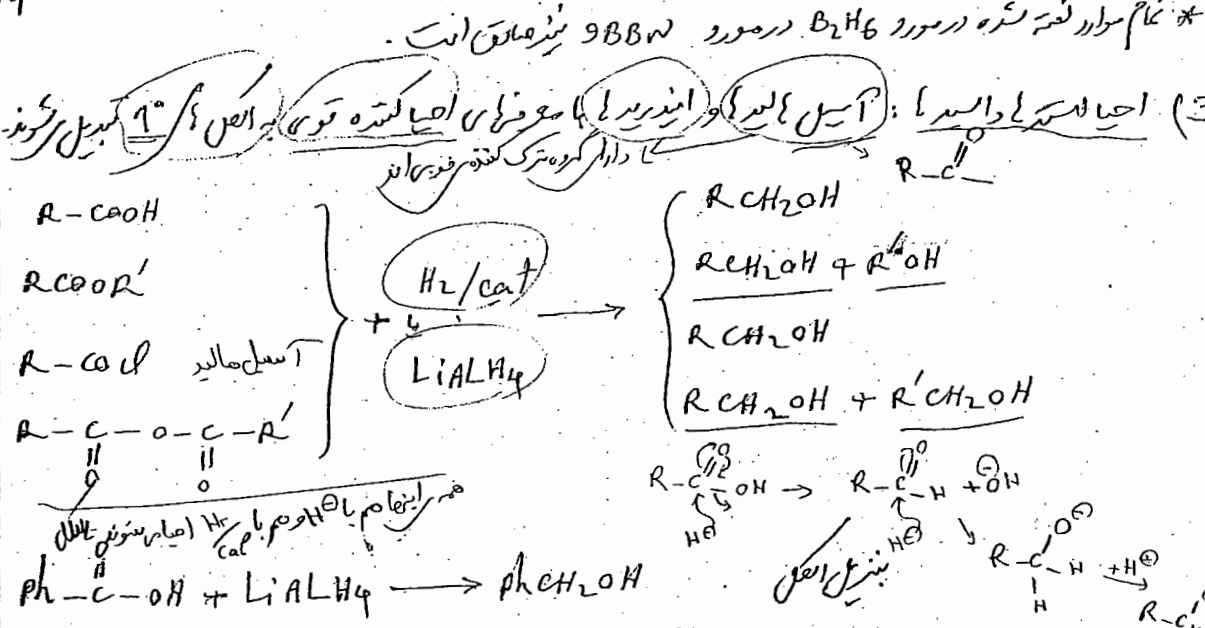 * تمام موارد گفته شده در مورد B2H6 در مورد 9 BBN نیز صادق است.
احیا استرها و اسیدها : آسیل هالیدها و انیدریدها با معرفهای احیا کننده قوی به الکل های 1° تبدیل می شوند.
دارای گروه ترک کننده خوبی اند
R-C=O
R-COOH
RCOOR'
R-COCl آسیل هالید
R-C-O-C-R'
O O
+ H2/cat یا LiALH4 →
RCH2OH
RCH2OH + R'OH
RCH2OH
RCH2OH + R'CH2OH
همه ی اینها هم با H⊖ و هم با H2/cat احیا می شوند
R-C(=O)-OH → R-C(=O)-H + ⊖OH
H⊖ H⊖
R-C(O⊖)(H)-H +H⊕ →
R-C
Ph-C(=O)-OH + LiALH4 → PhCH2OH